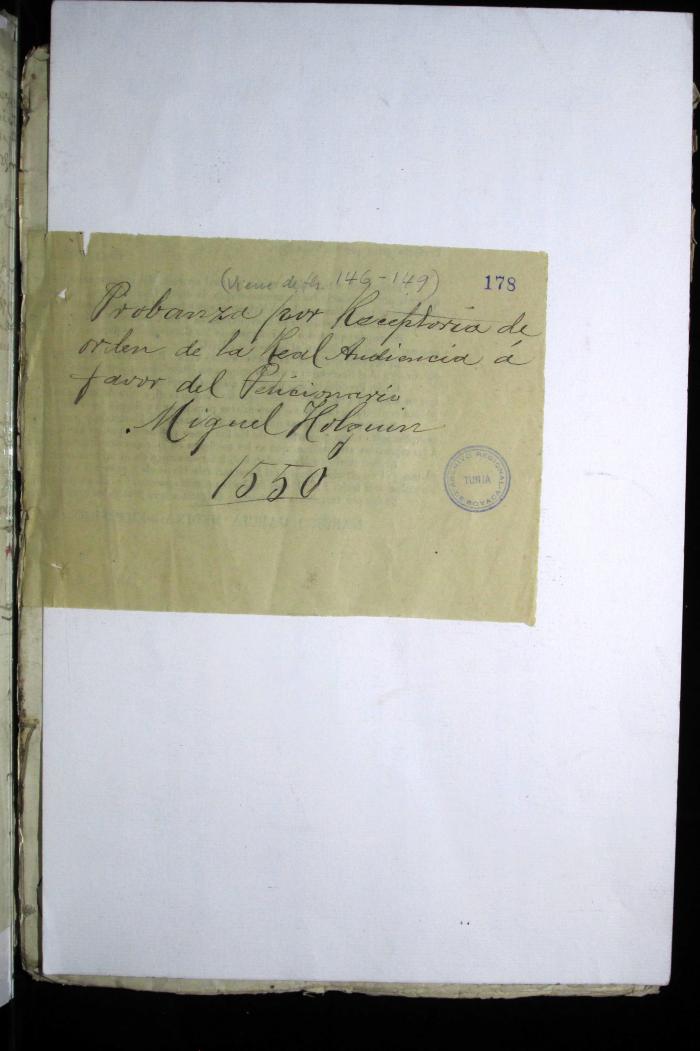 (Viene de fls. 146-149) 178
Probanza por Receptoria de
orden de la Real Audiencia á
favor del Peticionario
Miguel Holguin
1550
ARCHIVO REGIONAL
TUNJA
DE BOYACA